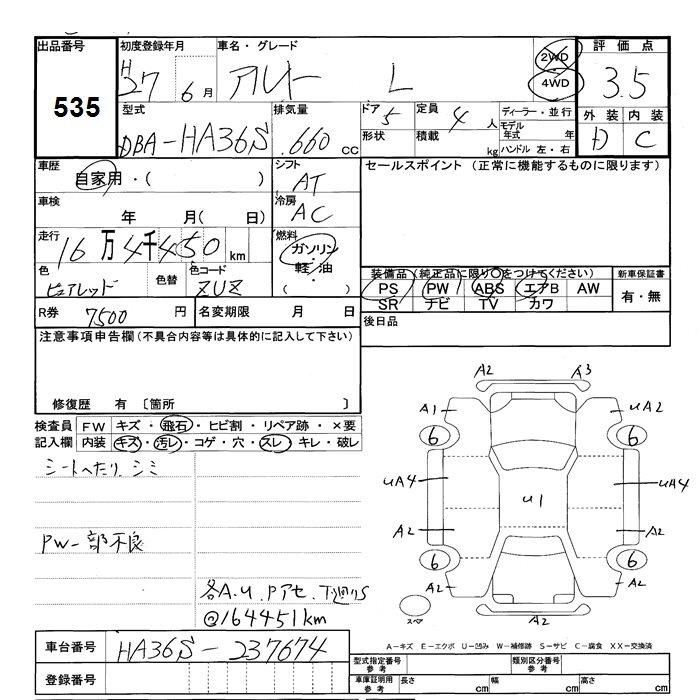 出品番号
535
初度登録年月
H27 6月
車名・グレード
アルト L
2WD
4WD
評価点
3.5
外装 内装
D C
型式
DBA-HA36S
排気量
.660 cc
ドア 5
形状
定員 4 人
積載 kg
ディーラー・並行
モデル年式 年
ハンドル 左・右
車歴
自家用・( )
シフト
AT
車検
年 月( 日)
冷房
AC
走行
16万4千450km
燃料
ガソリン・軽油・( )
色
ピュアレッド
色替
色コード
ZUZ
R券 7500円
名変期限 月 日
セールスポイント(正常に機能するものに限ります)
装備品(純正品に限り○をつけてください)
PS PW ABS エアB AW
SR ナビ TV カワ
新車保証書
有・無
後日品
注意事項申告欄(不具合内容等は具体的に記入して下さい)
修復歴 有 〔箇所 〕
検査員記入欄
FW キズ・飛石・ヒビ割・リペア跡・×要
内装 キズ・汚レ・コゲ・穴・スレ・キレ・破レ
シートへたり、シミ
PW一部不良
各A.U.Pアセ、下廻りS
@164451km
A2 A3
A1 UA2
6 6
UA4 U1 UA4
A2 A2
6 6
A2 A2
A2
スペア
A-キズ E-エクボ U-凹み W-補修跡 S-サビ C-腐食 XX-交換済
車台番号
HA36S-237674
登録番号
型式指定番号 参考
類別区分番号 参考
車庫証明用 参考
長さ cm 幅 cm 高さ cm